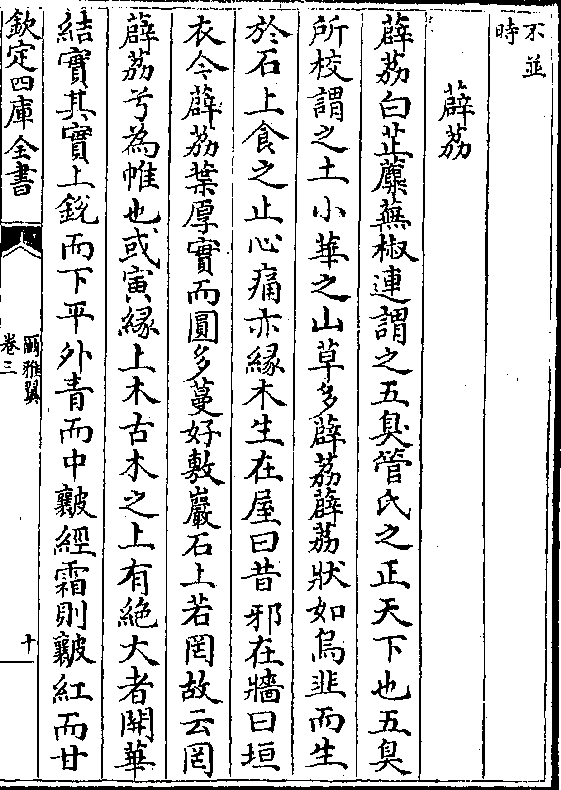 不並
時
薜荔
薜荔白芷蘪蕪椒連謂之五臭管氏之正天下也五臭
所校謂之土小華之山草多薜荔薜荔狀如烏韭而生
於石上食之止心痛亦緣木生在屋曰昔邪在牆曰垣
衣今薜荔葉厚實而圓多蔓好敷巖石上若罔故云罔
薜荔兮為帷也或寅緣上木古木之上有絶大者開華
結實其實上銳而下平外青而中瓤經霜則瓤紅而甘
欽定四庫全書
爾雅翼
卷三
十